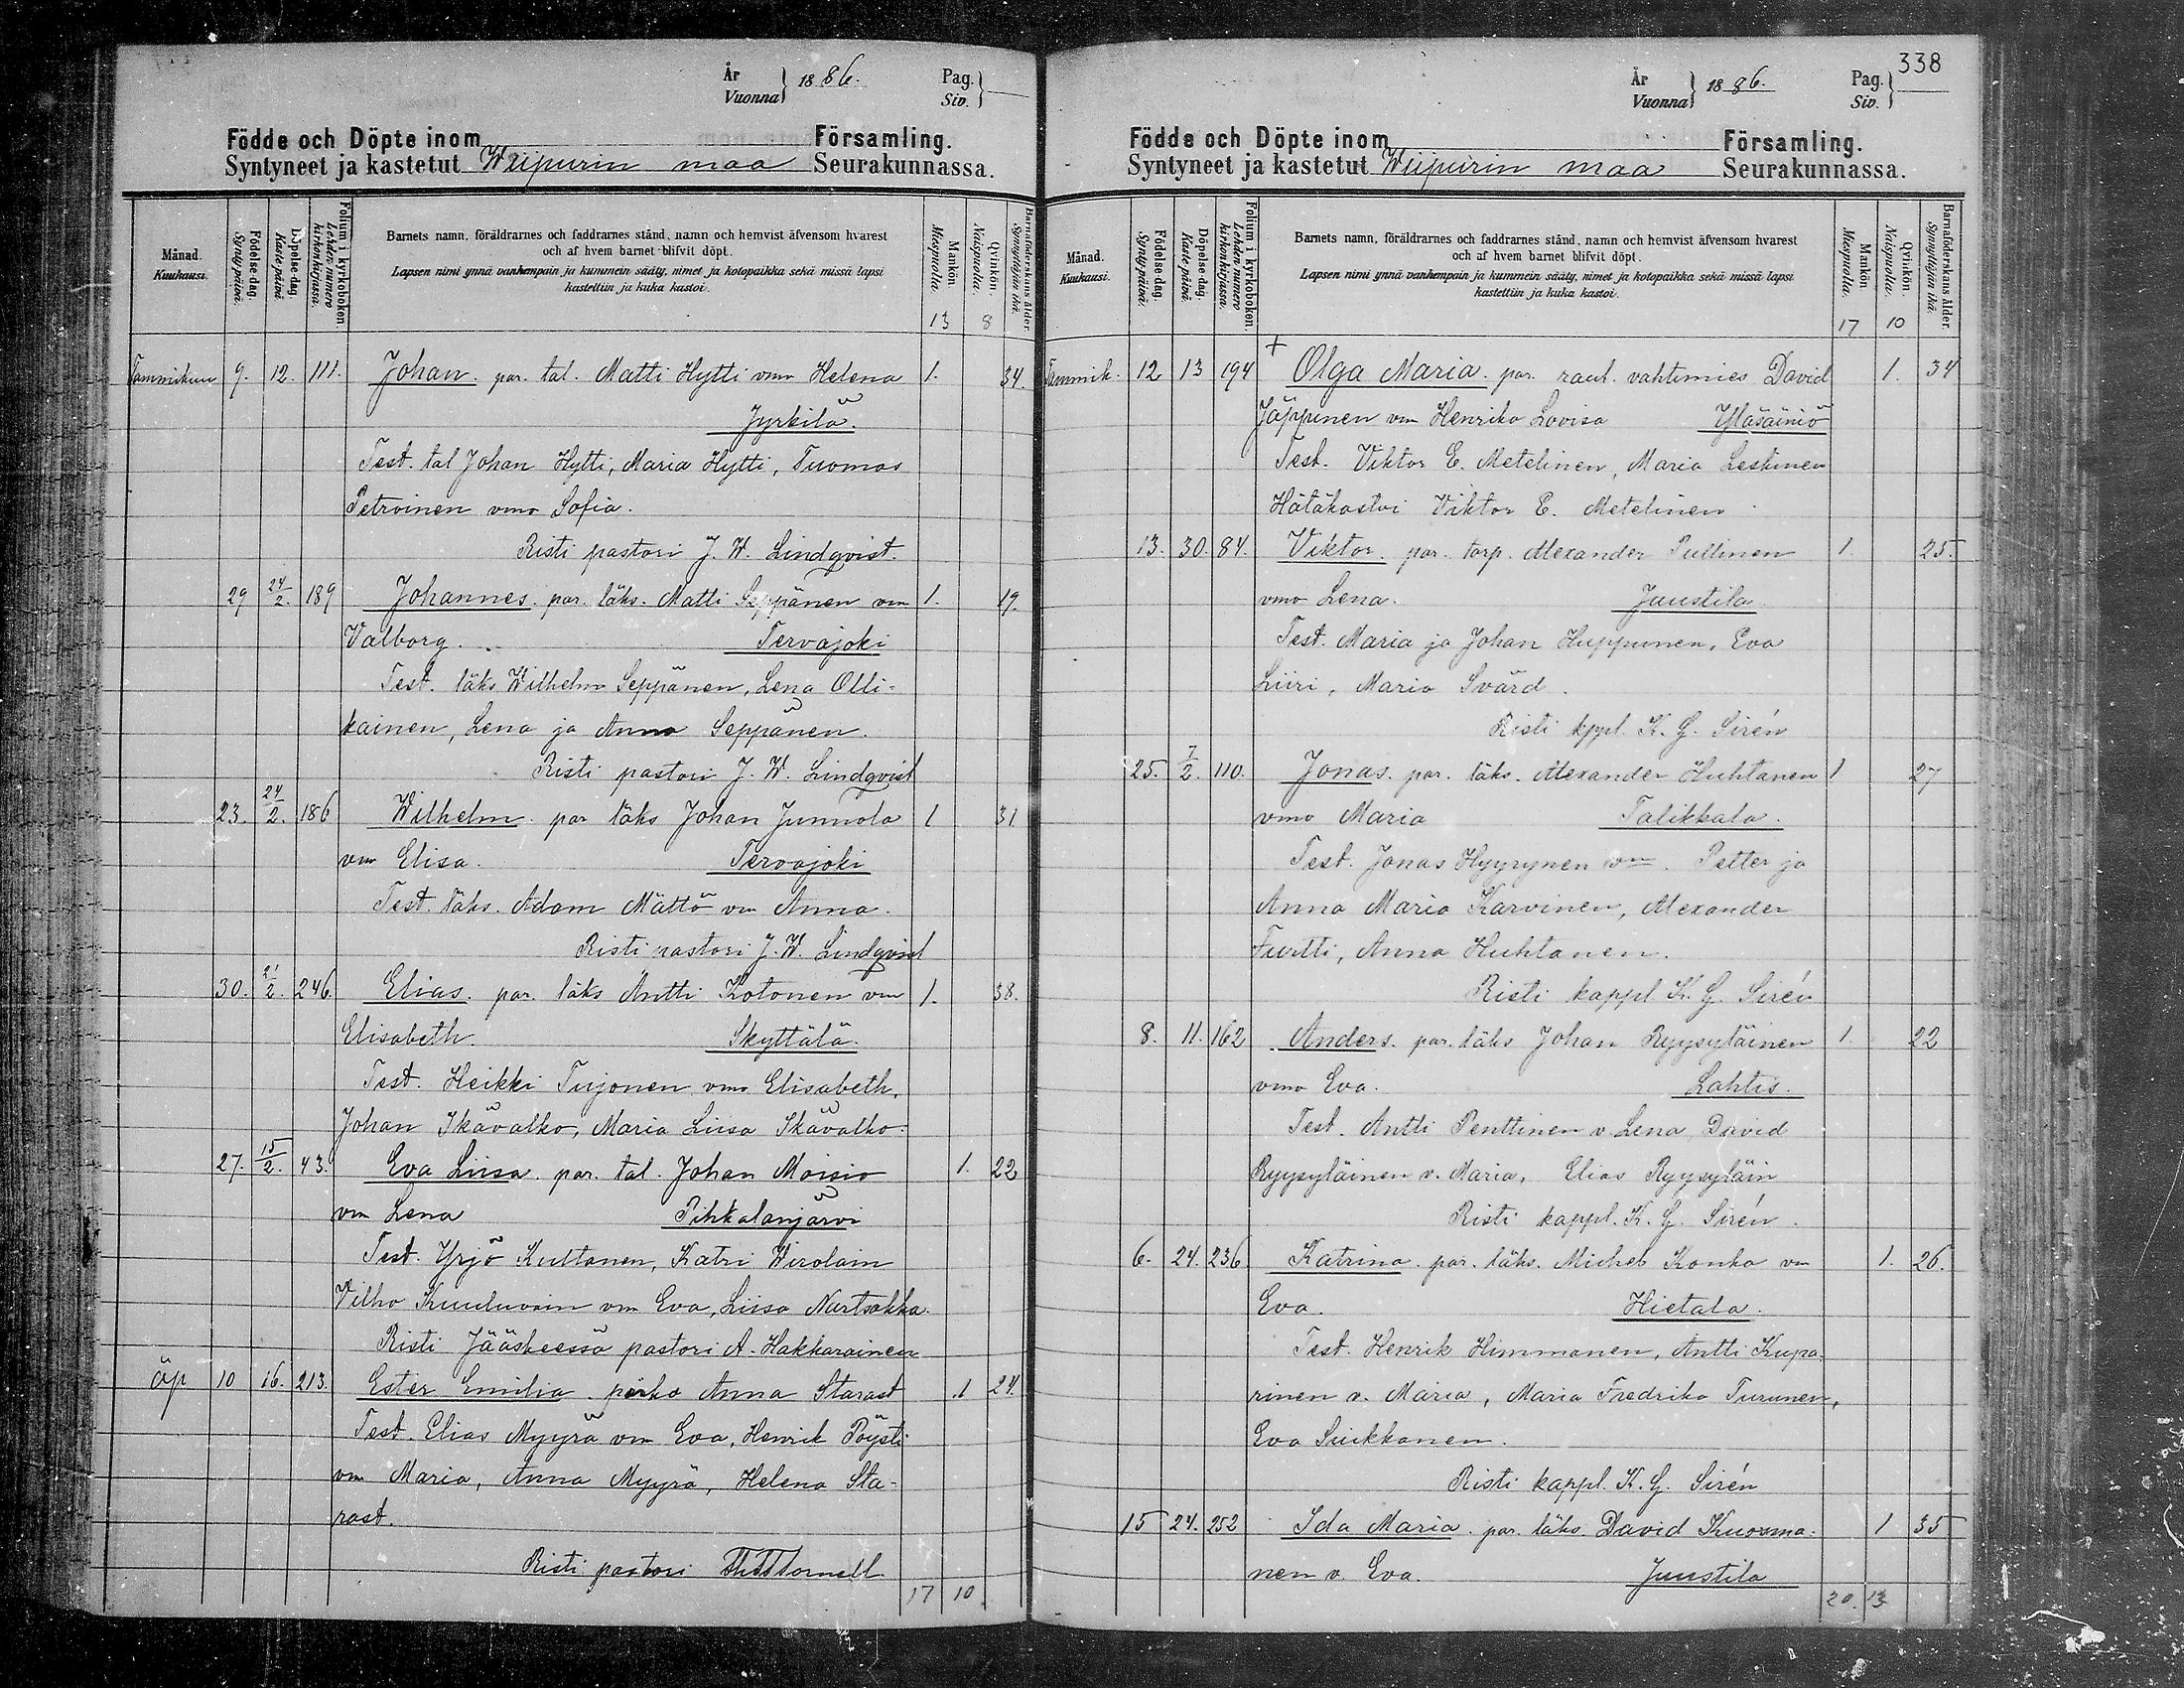 År
Vuonna } 1886.
Pag.
Siv. }
Födde och Döpte inom Församling.
Syntyneet ja kastetut Wiipurin maa Seurakunnassa.
Månad. Kuukausi.
Födelse-dag. Syntypäivä.
Döpelse-dag. Kastepäivä.
Folium i kyrkoboken. Lehden numero kirkonkirjassa.
Barnets namn, föräldrarnes och faddrarnes stånd, namn och hemvist äfvensom hvarest
och af hvem barnet blifvit döpt.
Lapsen nimi ynnä vanhempain ja kummein sääty, nimet ja kotopaikka sekä missä lapsi
kastettiin ja kuka kastoi.
Mankön. Miespuolia.
Qvinkön. Naispuolia.
Barnaföderskans ålder. Synnyttäjän ikä.
13 8
Tammikuu 9. 12. 111. Johan. par. tal. Matti Hytti vmo Helena 1. 34.
Jyrkilä.
Test. tal Johan Hytti, Maria Hytti, Tuomas
Petroinen vmo Sofia.
Risti pastori J. W. Lindqvist.
29 24/2. 189 Johannes. par. läks. Matti Seppänen vm 1. 19.
Valborg. Tervajoki
Test. läks Wilhelm Seppänen, Lena Olli-
kainen, Lena ja Anna Seppänen.
Risti pastori J. W. Lindqvist
23. 24/2. 186 Wilhelm par läks Johan Junnola 1 31.
vm Elisa. Tervajoki
Test. läks. Adam Mättö vm Anna.
Risti pastori J. W. Lindqvist
30. 21/2. 246. Elias. par. läks Antti Kotonen vm 1. 38.
Elisabeth. Skyttälä.
Test. Heikki Tujonen vmo Elisabeth,
Johan Skävalko, Maria Liisa Skävalko.
27. 15/2. 43. Eva Liisa. par. tal. Johan Moisio 1. 22
vm Lena Pihkalanjärvi
Test. Yrjö Kultanen, Katri Wirolain
Vilho Kuuluvain vm Eva, Liisa Nartsakka.
Risti Jääskessä pastori A. Hakkarainen
äp 10 16. 213. Ester Emilia. piika Anna Starast 1 24.
Test. Elias Myyrä vm Eva, Henrik Pöysti
vm Maria, Anna Myyrä, Helena Sta-
rast.
Risti pastori
17 10
338
År
Vuonna } 1886.
Pag.
Siv. }
Födde och Döpte inom Församling.
Syntyneet ja kastetut Wiipurin maa Seurakunnassa.
Månad. Kuukausi.
Födelse-dag. Syntypäivä.
Döpelse-dag. Kastepäivä.
Folium i kyrkoboken. Lehden numero kirkonkirjassa.
Barnets namn, föräldrarnes och faddrarnes stånd, namn och hemvist äfvensom hvarest
och af hvem barnet blifvit döpt.
Lapsen nimi ynnä vanhempain ja kummein sääty, nimet ja kotopaikka sekä missä lapsi
kastettiin ja kuka kastoi.
Mankön. Miespuolia.
Qvinkön. Naispuolia.
Barnaföderskans ålder. Synnyttäjän ikä.
17 10
Tammik. 12 13 194 + Olga Maria. par. raut. vahtimies David 1. 34
Jäppinen vm Henrika Lovisa Yläsäiniö
Test. Viktor E. Metelinen, Maria Leskinen
Hätäkastoi Viktor E. Metelinen
13. 30. 84. Viktor. par. torp. Alexander Pullinen 1. 25.
vmo Lena. Juustila
Test. Maria ja Johan Huppunen, Eva
Liiri, Maria Svärd.
Risti kppl. K. G. Sirén
25. 7/2. 110. Jonas. par. läks. Alexander Huhtanen 1 27
vmo Maria Talikkala.
Test. Jonas Hyyrynen vm. Petter ja
Anna Maria Karvinen, Alexander
Anna Huhtanen.
Risti kappl K. G. Sirén
8. 11. 162 Anders. par. läks Johan Ryysyläinen 1. 22
vmo Eva. Lahtis.
Test. Antti Penttinen v. Lena, David
Ryysyläinen v. Maria, Elias Ryysyläin
Risti kappl. K. G. Sirén.
6. 24. 236 Katrina. par. läks. Michel Konka vm 1. 26.
Eva. Hietala.
Test. Henrik Himmanen, Antti Kupa-
rinen v. Maria, Maria Fredrika Turunen,
Eva Suikkanen.
Risti kappl. K. G. Sirén
15 24. 252 Ida Maria. par. läks. David Kuosma- 1 35
nen v. Eva. Juustila
20. 13